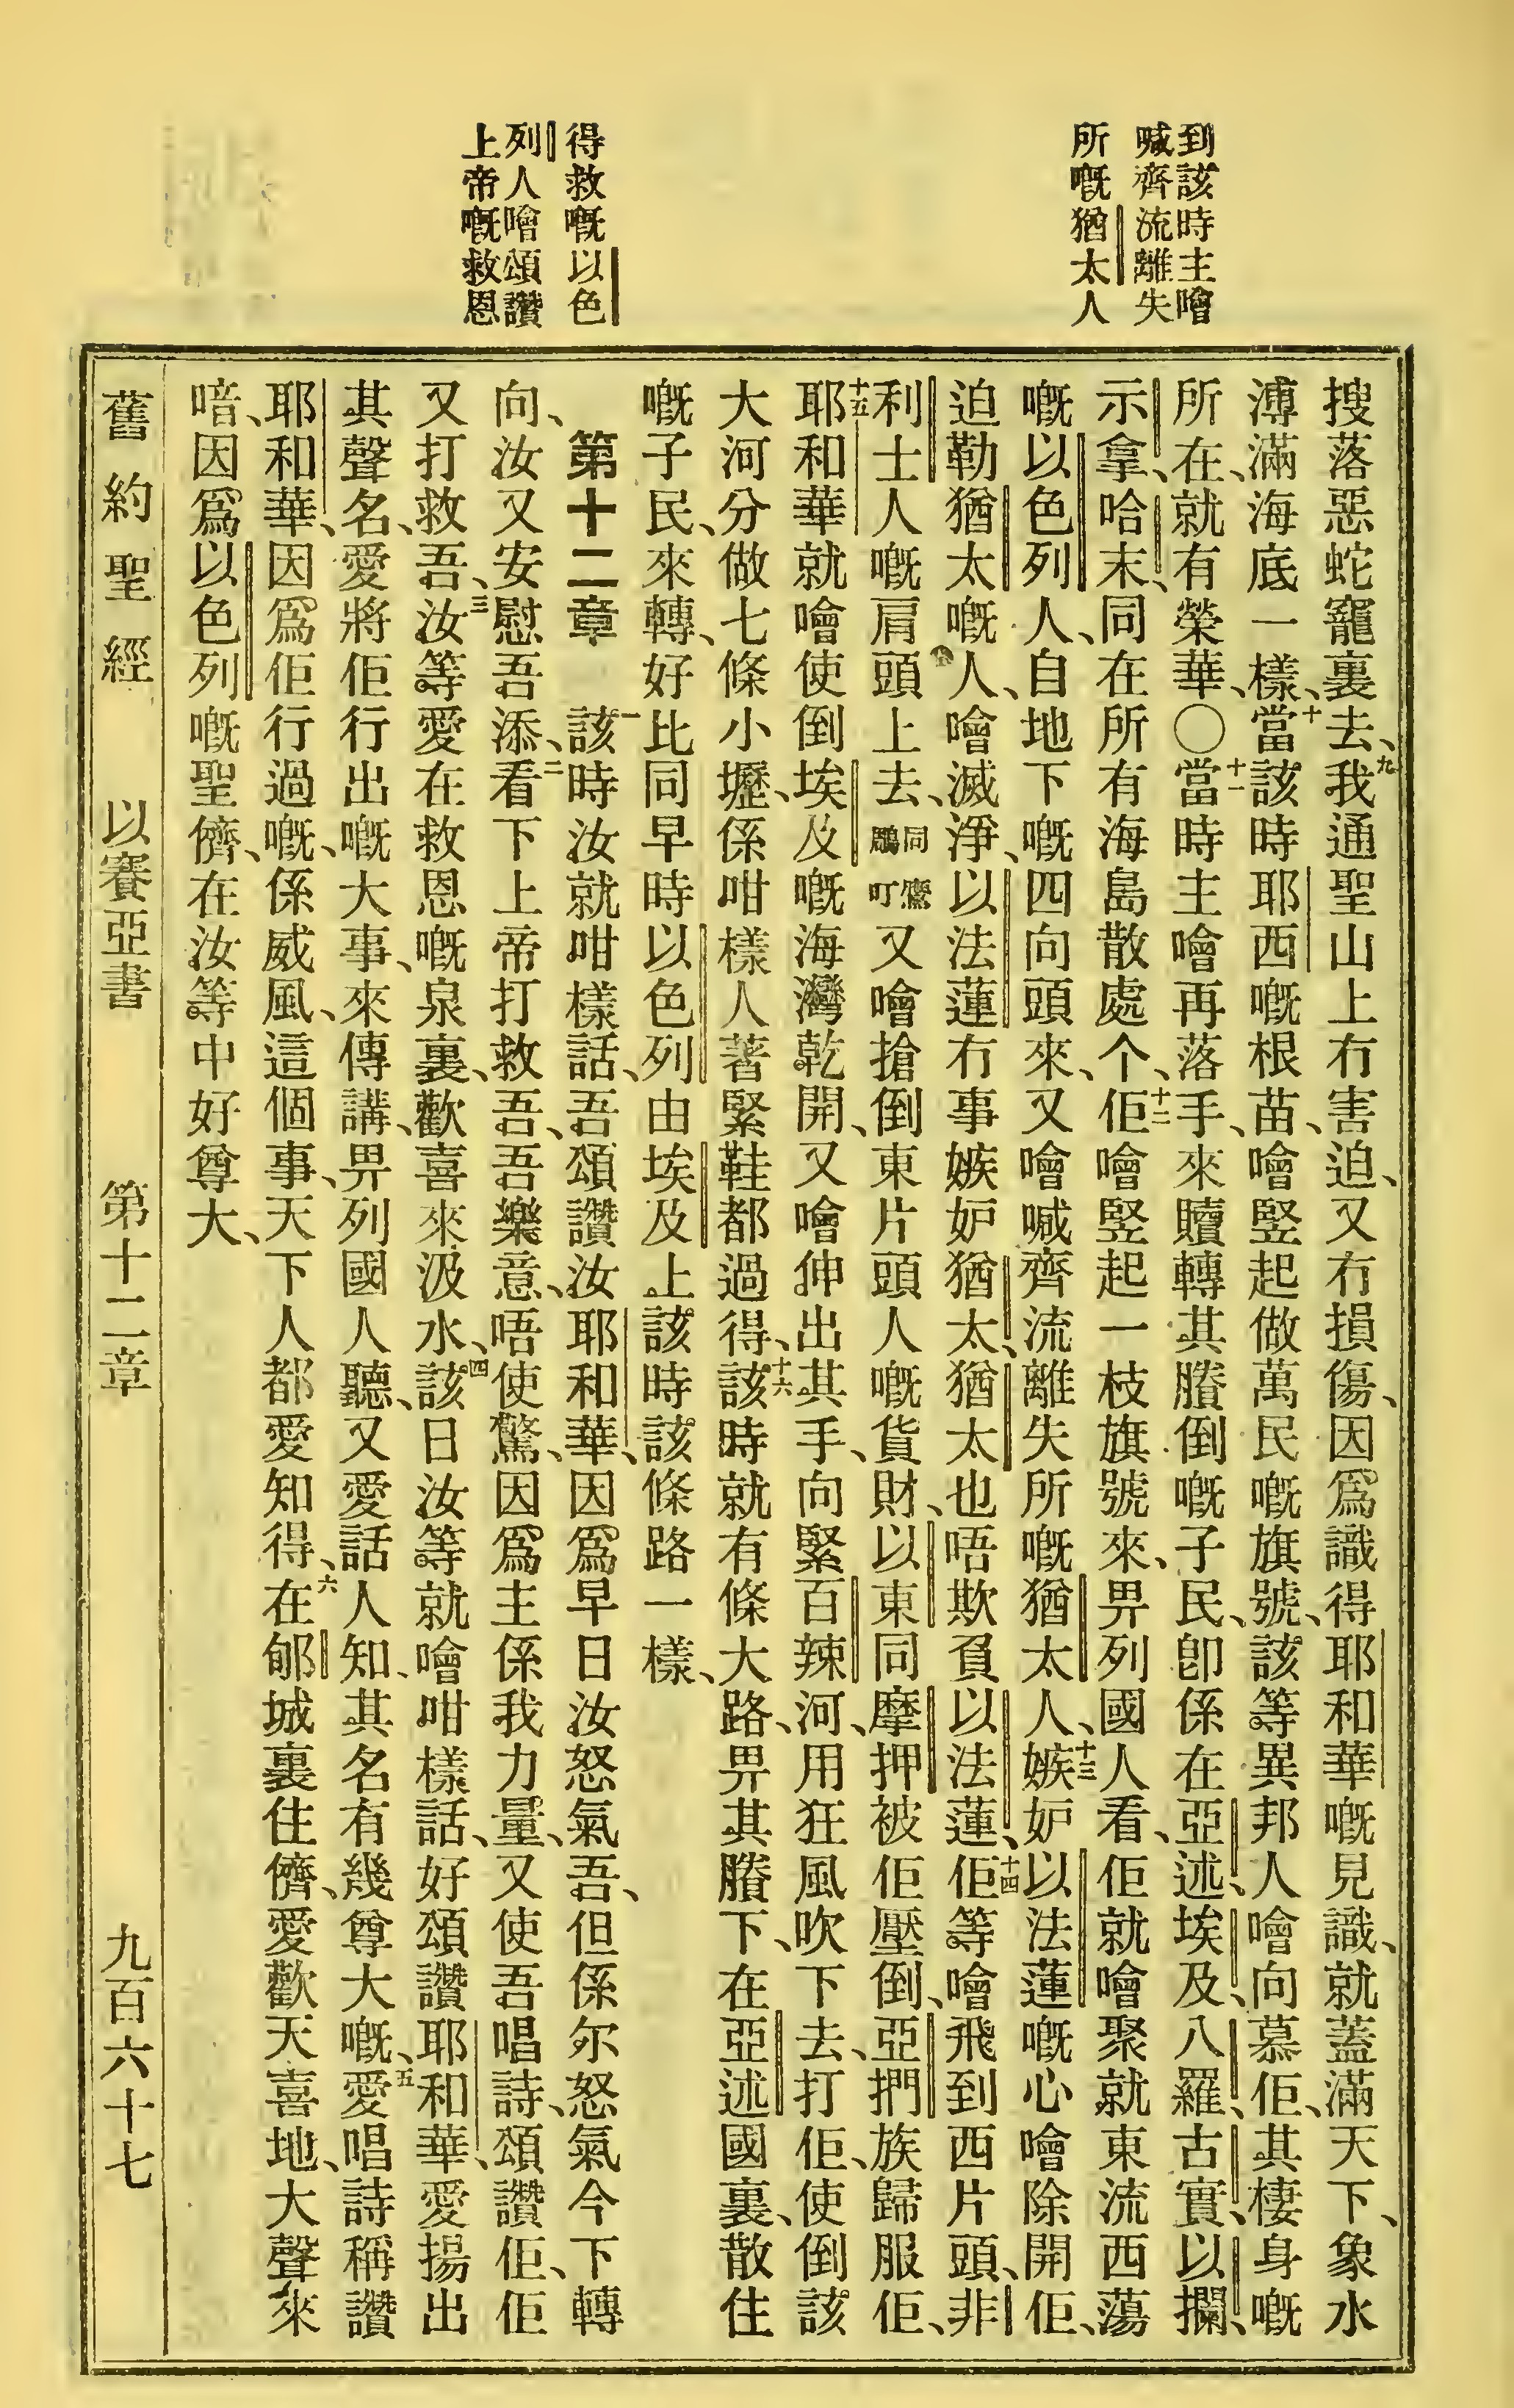 到該時主噲
喊齊流離失
所嘅猶太人
得救嘅以色
列人噲頌讚
上帝嘅救恩
搜落惡蛇窿裏去、九我通聖山上冇害迫、又冇損傷、因爲識得耶和華嘅見識、就蓋滿天下、象水
溥滿海底一樣、十當該時耶西嘅根苗、噲竪起做萬民嘅旗號、該等異邦人噲向慕佢、其棲身嘅
所在、就有榮華、〇十一當時主噲再落手、來贖轉其賸倒嘅子民、卽係在亞述、埃及、八羅、古實、以攔、
示拿、哈末、同在所有海島散處个、十二佢噲竪起一枝旗號來、畀列國人看、佢就噲聚就東流西蕩
嘅以色列人、自地下嘅四向頭來、又噲喊齊流離失所嘅猶太人、十三嫉妒以法蓮嘅心噲除開佢、
迫勒猶太嘅人、噲滅淨、以法蓮冇事嫉妒猶太、猶太也唔欺負以法蓮、十四佢等噲飛到西片頭、非
利士人嘅肩頭上去、同鷹鵰叮又噲搶倒東片頭人嘅貨財、以東同摩押被佢壓倒、亞捫族歸服佢、
十五耶和華就噲使倒埃及嘅海灣乾開、又噲伸出其手、向緊百辣河、用狂風吹下去、打佢、使倒該
大河分做七條小壢、係咁樣人著緊鞋都過得、十六該時就有條大路、畀其賸下、在亞述國裏、散住
嘅子民、來轉、好比同早時以色列由埃及上該時該條路一樣、
第十二章 一該時汝就咁樣話、吾頌讚汝耶和華、因爲早日汝怒氣吾、但係尔怒氣今下轉
向、汝又安慰吾添、二看下上帝打救吾、吾樂意、唔使驚、因爲主係我力量、又使吾唱詩、頌讚佢、佢
又打救吾、三汝等愛在救恩嘅泉裏、歡喜來汲水、四該日汝等就噲咁樣話、好頌讚耶和華、愛揚出
其聲名、愛將佢行出嘅大事、來傳講、畀列國人聽、又愛話人知、其名有幾尊大嘅、五愛唱詩稱讚
耶和華、因爲佢行過嘅、係威風、這個事、天下人都愛知得、六在郇城裏住儕、愛歡天喜地、大聲來
喑、因爲以色列嘅聖儕、在汝等中好尊大、
舊約聖經 以賽亞書 第十二章 九百六十七